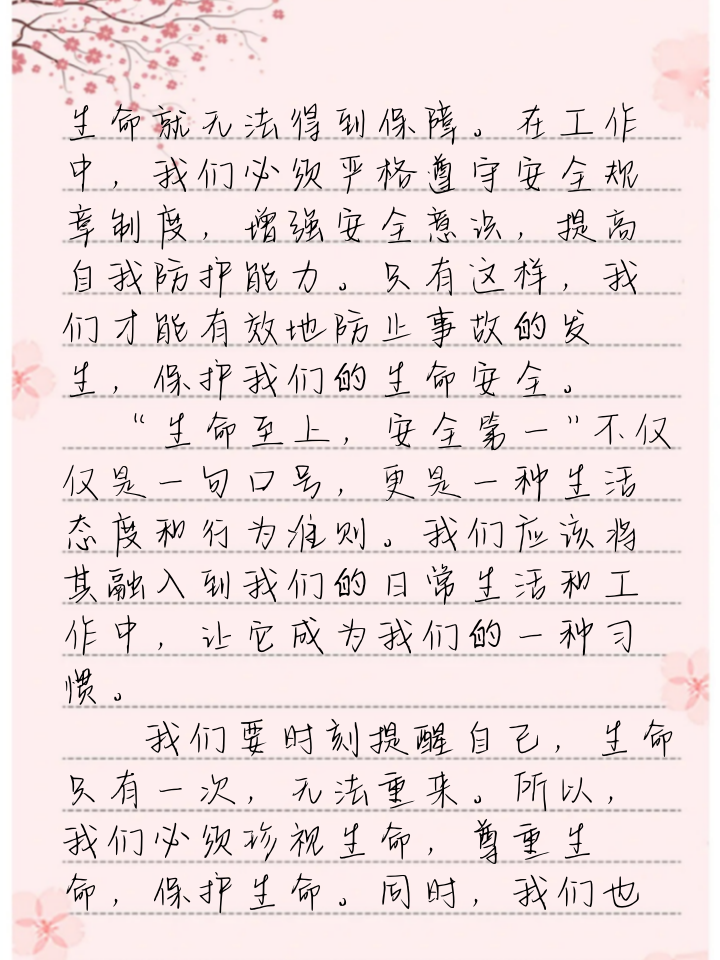 生命就无法得到保障。在工作
中，我们必须严格遵守安全规
章制度，增强安全意识，提高
自我防护能力。只有这样，我
们才能有效地防止事故的发
生，保护我们的生命安全。
“生命至上，安全第一”不仅
仅是一句口号，更是一种生活
态度和行为准则。我们应该将
其融入到我们的日常生活和工
作中，让它成为我们的一种习
惯。
我们要时刻提醒自己，生命
只有一次，无法重来。所以，
我们必须珍视生命，尊重生
命，保护生命。同时，我们也